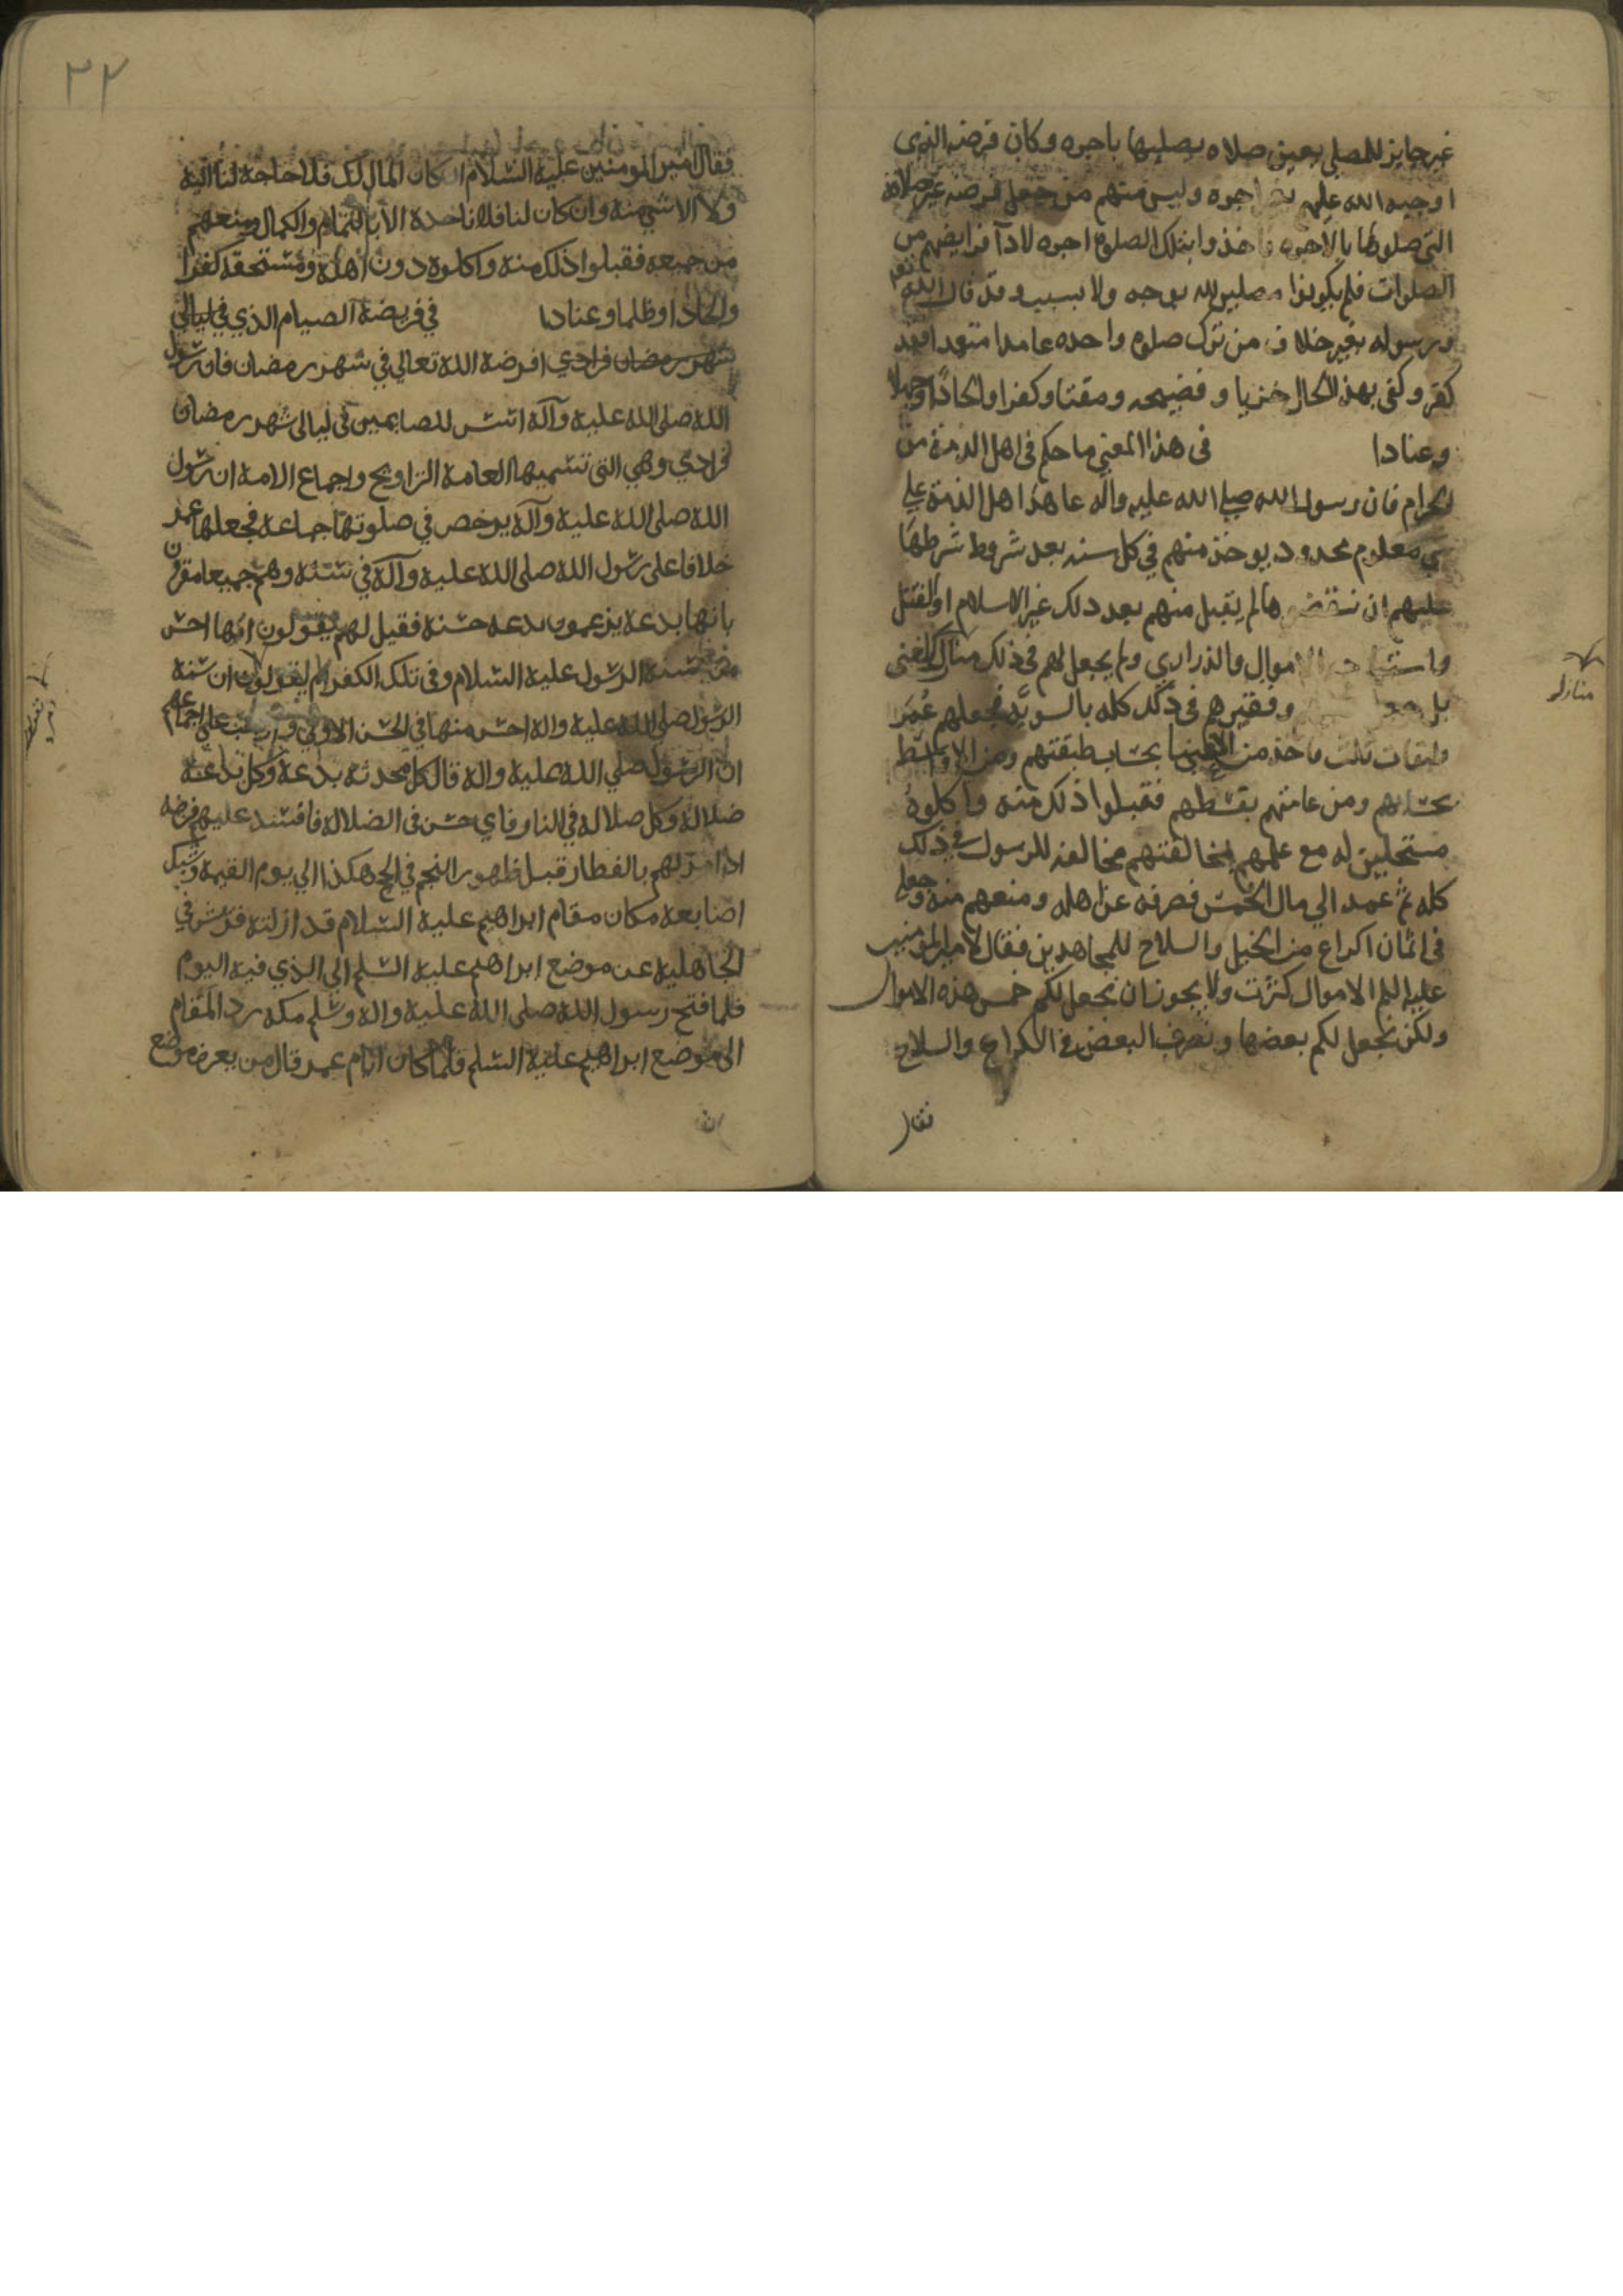 غير جايز للمصلي بعين صلاه يصليها باجره وكان فرضه الذي
اوجبه الله عليهم اجره وليس منهم من جعل فرضه غير صلاته
التي صلوها بالاجره واخذوا بتلك الصلوة اجره لادآ فرايضهم من
الصلوات فلم يكونوا مصلين لله بوجه ولا بسبب وقد قال الله تعا
ورسوله بغير خلاف من ترك صلوه واحده عامدا متعمدا فقد
كفر وكفى بهذا الحال خزيا وفضيحه ومقتا وكفرا والحادا وجهلا
وعنادا في هذا المعني ما حكم في اهل الذمة من
الحرام فان رسول الله صلي الله عليه واله عاهد اهل الذمة علي
شي معلوم محدود يوخذ منهم في كل سنه بعد شروط شرطها
عليهم ان نقضوها لم يقبل منهم بعد ذلك غير الاسلام او القتل
واستباحه الاموال والذراري ولم يجعل لهم في ذلك منازل للغني
بل جعل وفقيرهم في ذلك كله بالسويه فجعلهم عمر
طبقات ثلث ياخذ من الاغنيا بحساب طبقتهم ومن الاوسط
بحسابهم ومن عامتهم بقسطهم فقبلوا ذلك منه واكلوه
مستحلين له مع علمهم بمخالفتهم مخالفه للرسول في ذلك
كله ثم عمد الي مال الخمس فصرفه عن اهله ومنعهم منه وجعله
في اثمان اكراع من الخيل والسلاح للمجاهدين فقال لامير المومنين
عليه السلم الاموال كثرت ولا يجوز ان نجعل لكم خمس هذه الاموال
ولكن نجعل لكم بعضها ونصرف البعض في الكراع والسلاح
فقال
منازله
٣٢
فقال امير المومنين عليه السلام ان كان المال لك فلا حاجة لنا اليه
ولا الا شي منه وان كان لنا فلا ناخذه الا بالتمام والكمال ومنعهم
من جميعه فقبلوا ذلك منه واكلوه دون اهله ومستحقه كفرا
والحادا وظلما وعنادا في فريضة الصيام الذي في ليالي
شهر رمضان فرادي افرضه الله تعالي في شهر رمضان فان رسول
الله صلى الله عليه وآله اسس للصايمين في ليالي شهر رمضان
فرادي وهي التي تسميها العامة التراويح واجماع الامة ان رسول
الله صلى الله عليه وآله يرخص في صلوتها جماعه فجعلها عمر
خلافا على رسول الله صلى الله عليه وآله في سنته وهم جميعا مقرون
بانها بدعة يزعمون بدعه حسنه فقيل لهم يقولون انها احسن
من سنة الرسول عليه السلام وفي تلك الكفر ام يقولون ان سنة
الرسول صلى الله عليه واله احسن منها في الحسن الاولي على اجماعهم
ان الرسول صلي الله عليه واله قال كل محدثه بدعة وكل بدعة
ضلالة وكل ضلاله في النار فاي حسن في الضلالة فافسد عليهم فرضه
اذ امرهم بالفطار قبل ظهور النجم في الحج هكذا الي يوم القيمه وشبك
اصابعه مكان مقام ابراهيم عليه السلام قد ازلته قريش في
الجاهلية عن موضع ابراهيم عليه السلم الي الذي فيه اليوم
فلما فتح رسول الله صلى الله عليه واله وسلم مكه رد المقام
الى موضع ابراهيم عليه السلم فلما كان ايام عمر قال من يعرف موضع